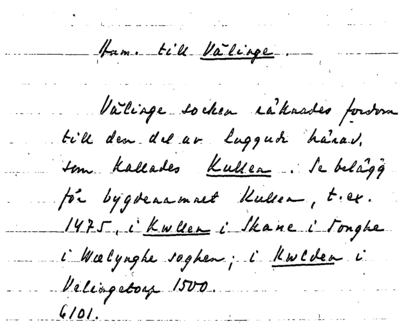 Ham. till Välinge.
Välinge socken räknades fordom
till den del av Luggude härad,
som kallades Kullen. Se belägg
för bygdenamnet Kullen, t.ex.
1475, i Kwllen i Skane i Tonghe
i Wælynghe soghen; i Kwlden i
Velingetorp 1500.
6101.